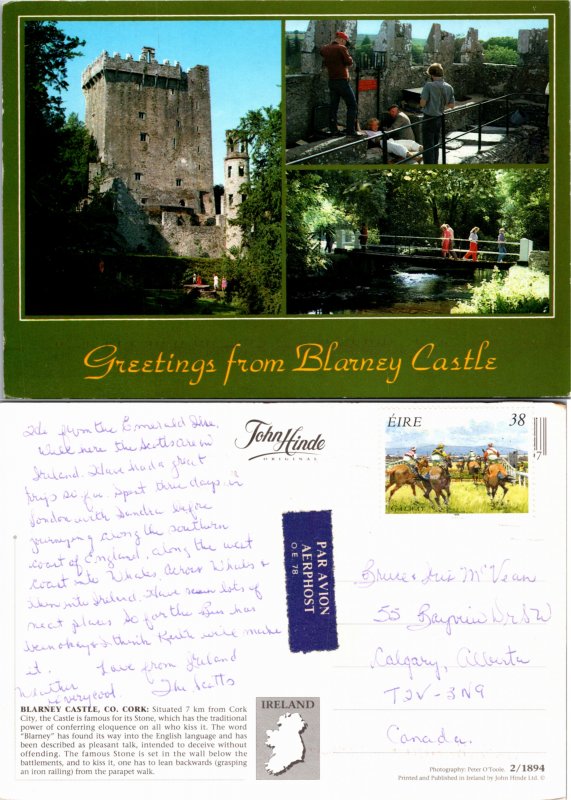 Greetings from Blarney Castle
Hi from the Emerald Isle,
Well here the Scotts are in
Ireland. Have had a great
trip so far. Spent three days in
London with Sandra before
journeying along the southern
coast of England, along the west
coast into Whales. Across Whales &
then into Ireland. Have seen lots of
neat places. So far the bus has
been okay & I think Keith will make
it. Love from Ireland
Weather The Scotts
is very good.
BLARNEY CASTLE, CO. CORK: Situated 7 km from Cork
City, the Castle is famous for its Stone, which has the traditional
power of conferring eloquence on all who kiss it. The word
"Blarney" has found its way into the English language and has
been described as pleasant talk, intended to deceive without
offending. The famous Stone is set in the wall below the
battlements, and to kiss it, one has to lean backwards (grasping
an iron railing) from the parapet walk.
John Hinde
ORIGINAL
PAR AVION
AERPHOST
O.E 78
IRELAND
ÉIRE 38
Bruce & Iris McVean
55 Bayview Dr SW
Calgary, Alberta
T2V-3N9
Canada.
Photography: Peter O'Toole. 2/1894
Printed and Published in Ireland by John Hinde Ltd. ©